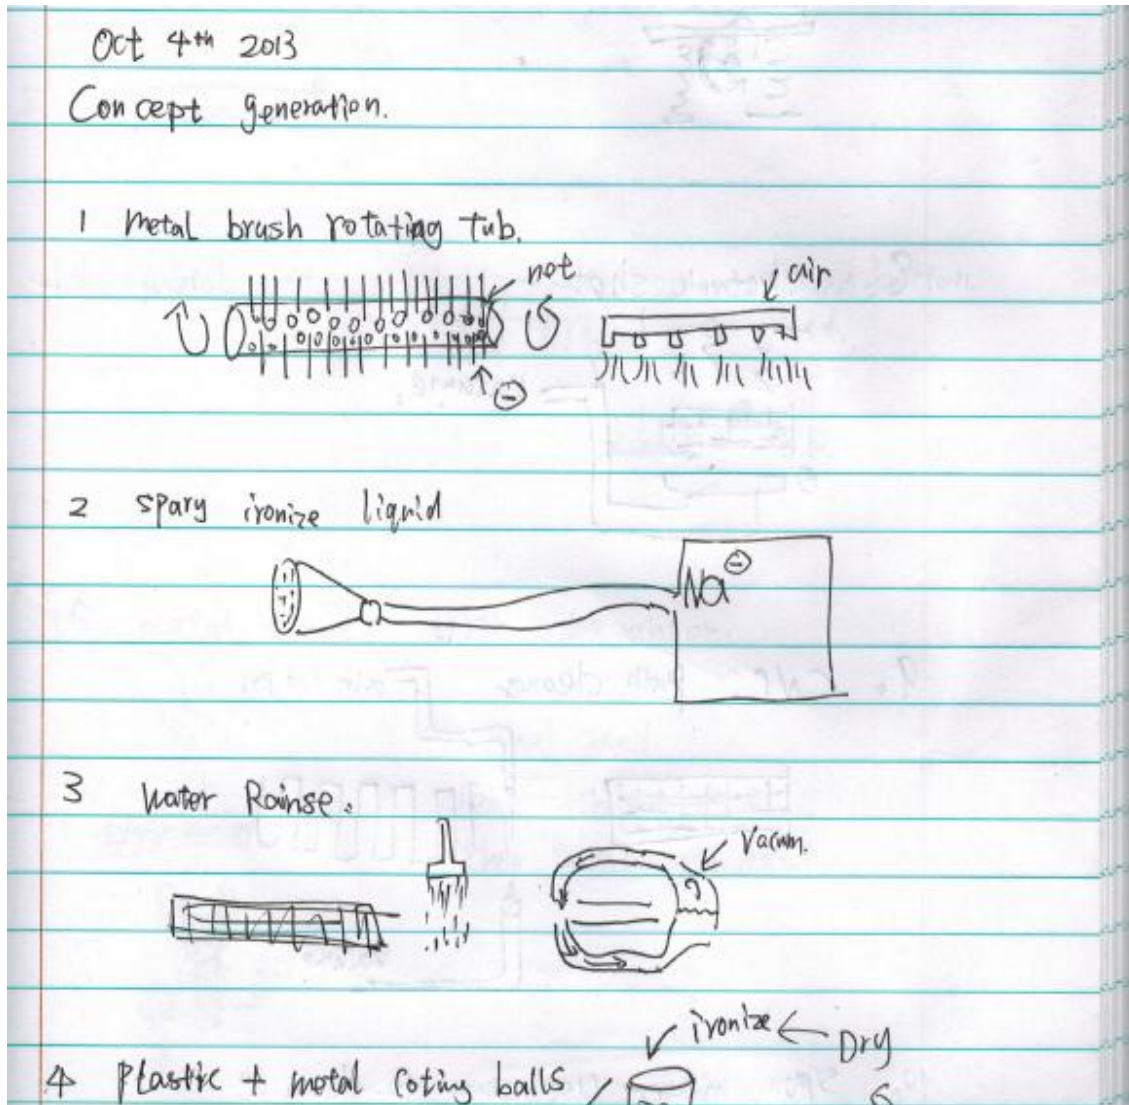 Oct 4th 2013
Concept generation.
1 metal brush rotating tub.
not
air
⊖
2 spary ironize liquid
Na⊖
3 water Rainse.
Vacum.
ironize ← Dry
4 Plastic + metal coting balls